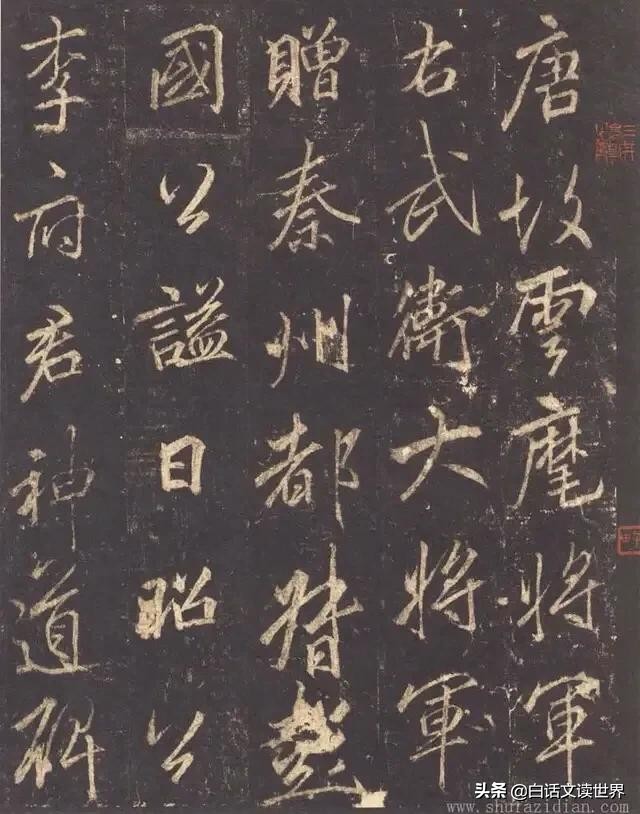 唐故雲麾將軍
右武衛大將軍
贈秦州都督彭
國公謚曰昭公
李府君神道碑
头条 @白话文读世界
www.shufazidian.com